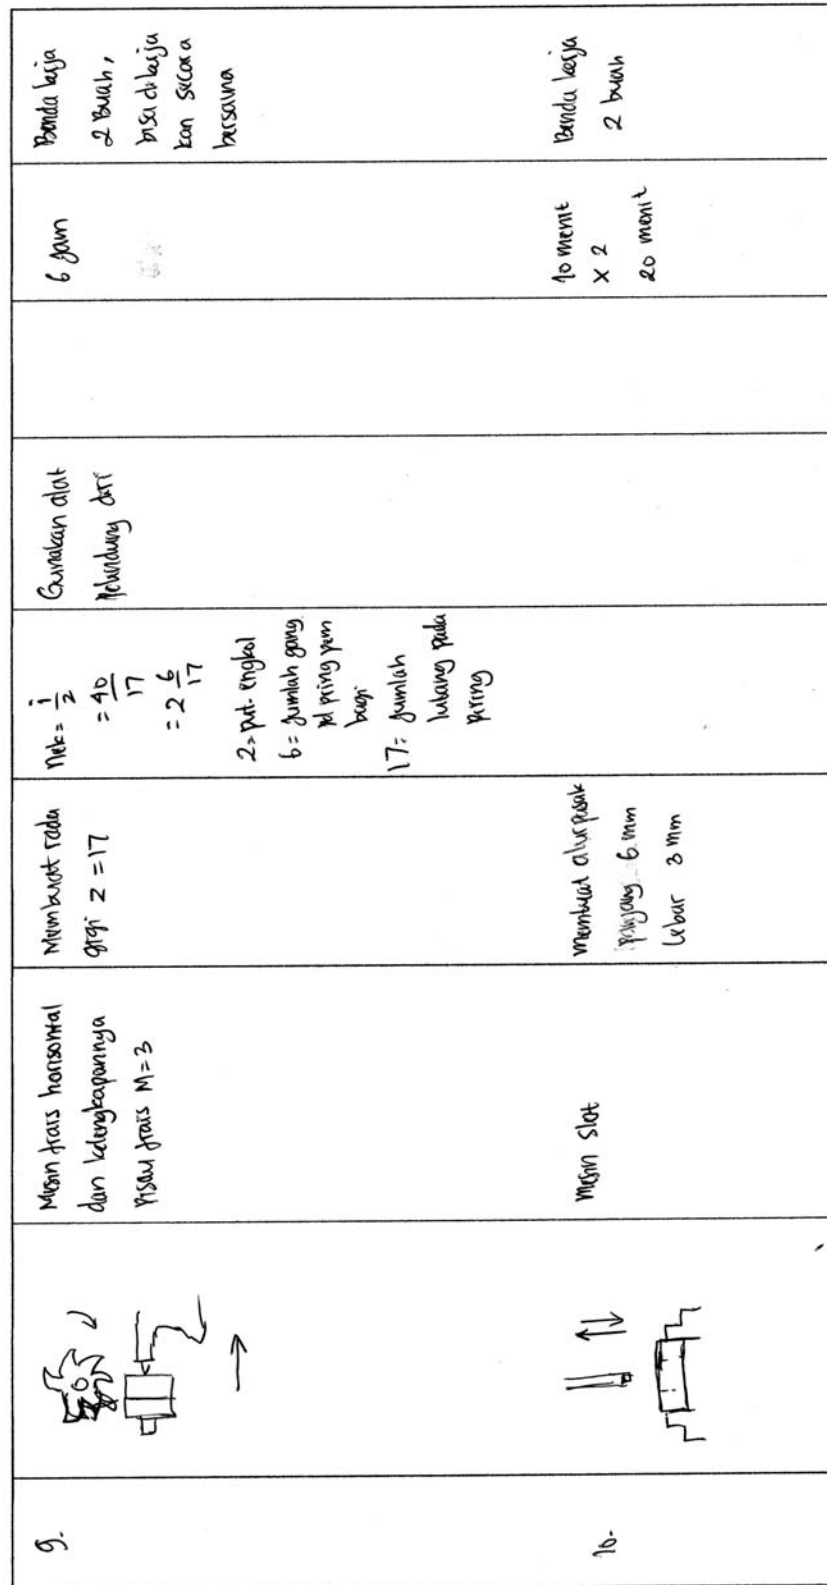 9.
Mesin frais horisontal
dan kelengkapannya
Pisau frais M=3
Membuat roda
gigi z = 17
nek = i/z
= 40/17
= 2 6/17
2 = put. engkol
6 = jumlah gang
pd piring pem
bagi
17 = jumlah
lubang pada
piring
Gunakan alat
Pelindung diri
6 jam
Benda kerja
2 Buah,
bisa dikerja
kan secara
bersama
10.
Mesin slot
membuat alur pasak
panjang 6 mm
lebar 3 mm
10 menit
x 2
20 menit
Benda kerja
2 buah